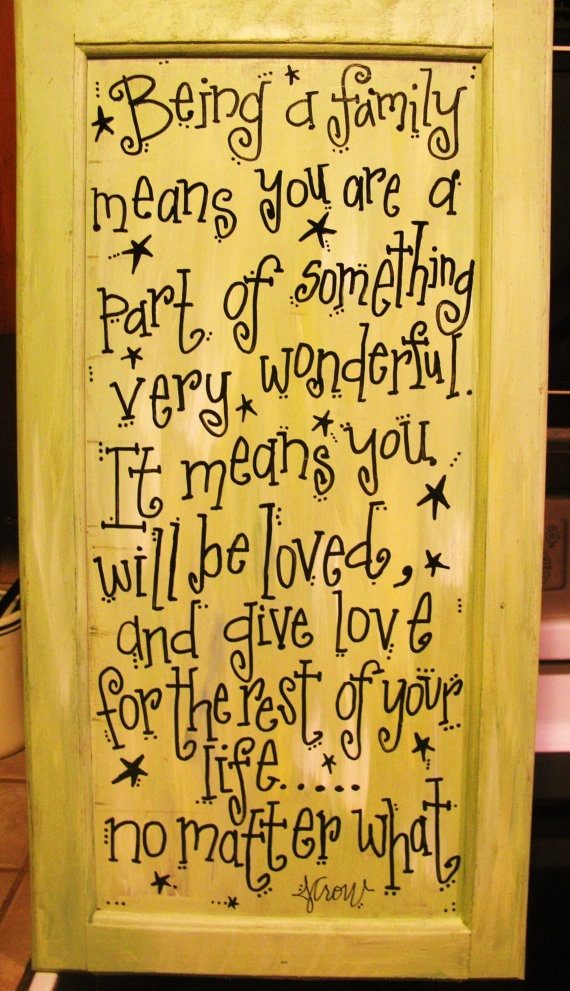 Being a family
means you are a
part of something
very wonderful.
It means you
will be loved,
and give love
for the rest of your
life.....
no matter what